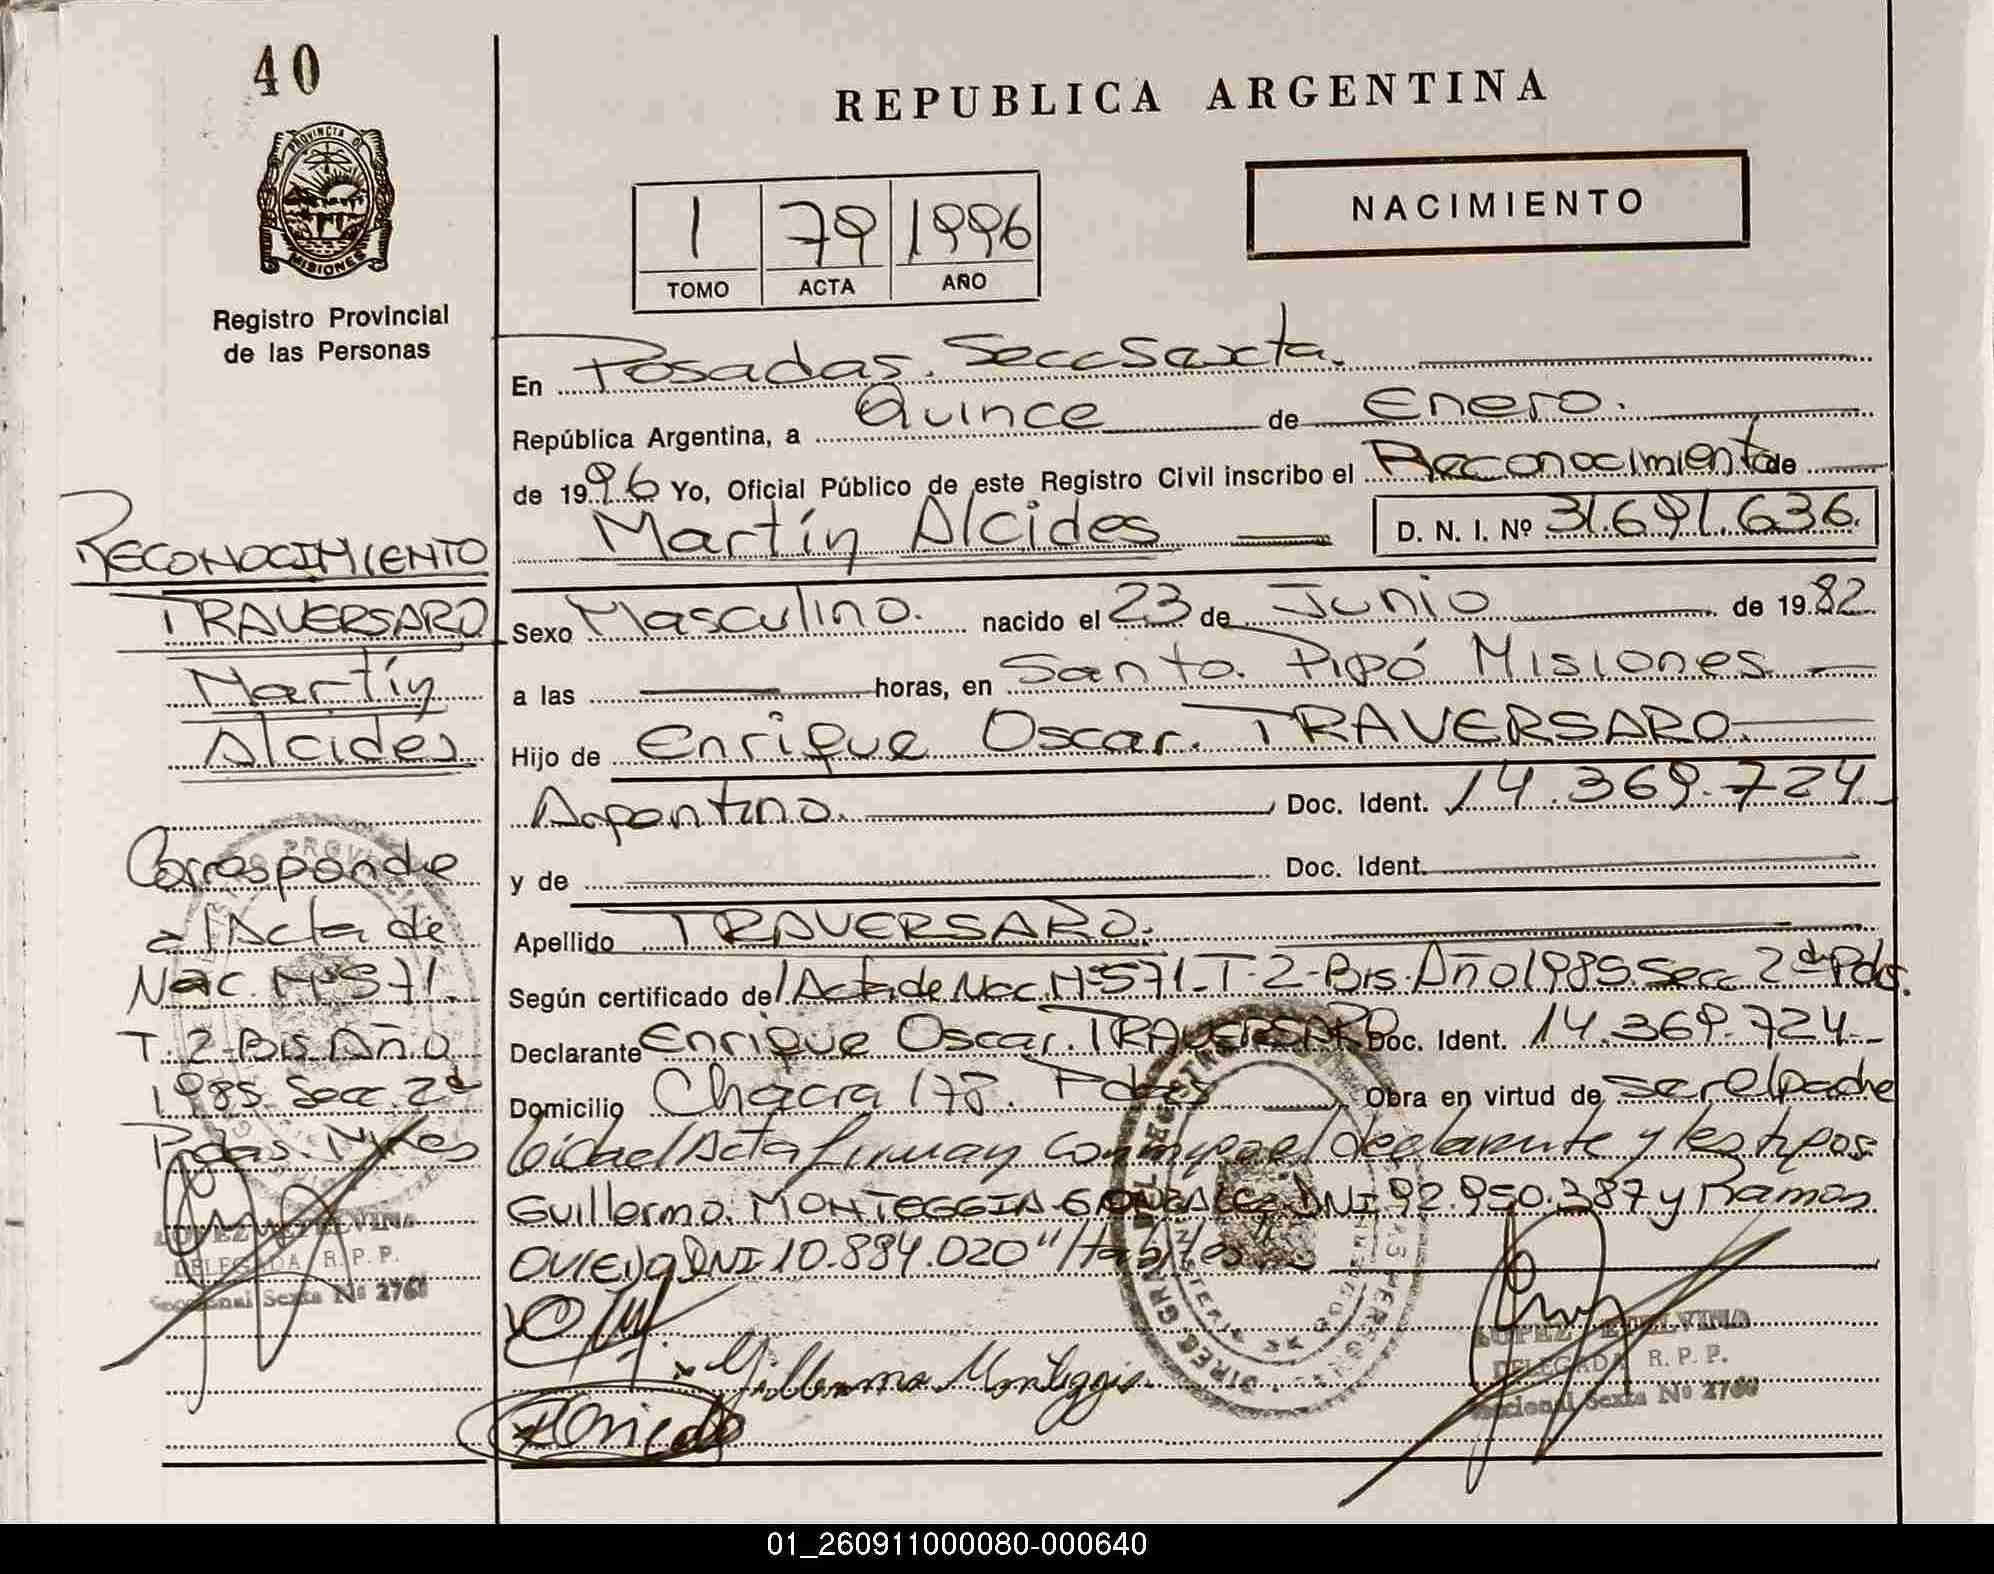 40
PROVINCIA DE
MISIONES
Registro Provincial
de las Personas
REPUBLICA ARGENTINA
1 79 1996
TOMO ACTA AÑO
NACIMIENTO
En Posadas. Secc Sexta.
República Argentina, a Quince de Enero.
de 1996 Yo, Oficial Público de este Registro Civil inscribo el Reconocimiento de
Martín Alcides D. N. I. Nº 31.691.636.
Sexo Masculino. nacido el 23 de Junio de 1982
a las horas, en Santo. Pipó Misiones
Hijo de Enrique Oscar. TRAVERSARO
Argentino. Doc. Ident. 14.369.724
y de Doc. Ident.
Apellido TRAVERSARO.
Según certificado del Acta de Nac. Nº 571-T-2-Bis-Año 1985. Secc 2da Pdas.
Declarante Enrique Oscar. TRAVERSARO Doc. Ident. 14.369.724
Domicilio Chacra 178. Pdas Obra en virtud de ser el padre
leida el Acta firman conmigo el declarante y los tgos
Guillermo. MONTEGGIA GONZALEZ DNI 92.950.387 y Ramon
OVIEDO DNI 10.884.020 "Habiles"
Guillermo Monteggia
Oviedo
LOPEZ ETELVINA
DELEGADA R. P. P.
Seccional Sexta Nº 2760
RECONOCIMIENTO
TRAVERSARO
Martín
Alcides
Corresponde
al Acta de
Nac. Nº 571.
T. 2-Bis Año
1985. Secc. 2da
Pdas. Mnes
LOPEZ ETELVINA
DELEGADA R. P. P.
Seccional Sexta Nº 2760
01_260911000080-000640